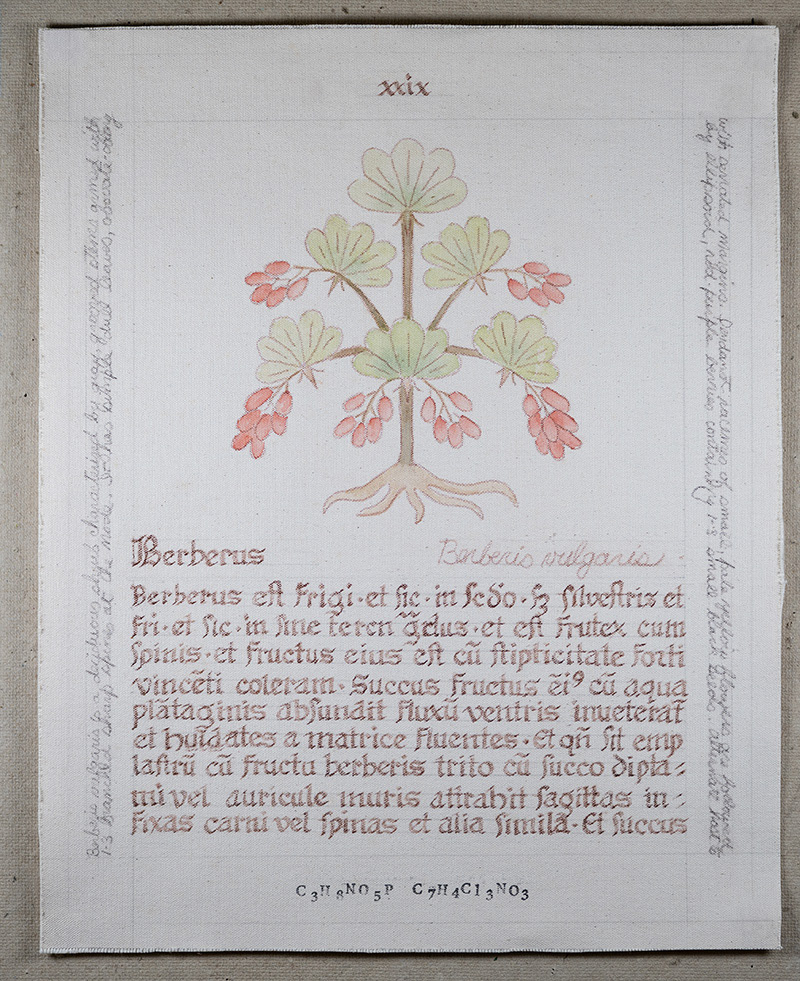 xxix
Berberus
Berberis vulgaris
Berberus est frigi · et sic · in secdo · sz silvestris et
fri · et sic · in fine · et est frutex cum
spinis · et fructus eius est cū stipticitate forti
vincēti coleram · Succus fructus ei⁹ cū aqua
plātaginis absundit fluxū ventris inueterat
et hūidates a matrice fluentes · Et qñ sit emp
lastrū cū fructu berberis trito cū succo dipta-
mi vel auricule muris attrahit sagittas in-
fixas carni vel spinas et alia similā · Et succus
C3H8NO5P C7H4Cl3NO3
Berberis vulgaris is a deciduous shrub characterized by gray, grooved stems armed with
1-3 branched sharp spines at the node. It has simple dull leaves, obovate-oblong
with serrated margins. Pendant racemes of small, pale yellow flowers are followed
by ellipsoid, red purple berries containing 1-3 small black seeds. Alternate host to